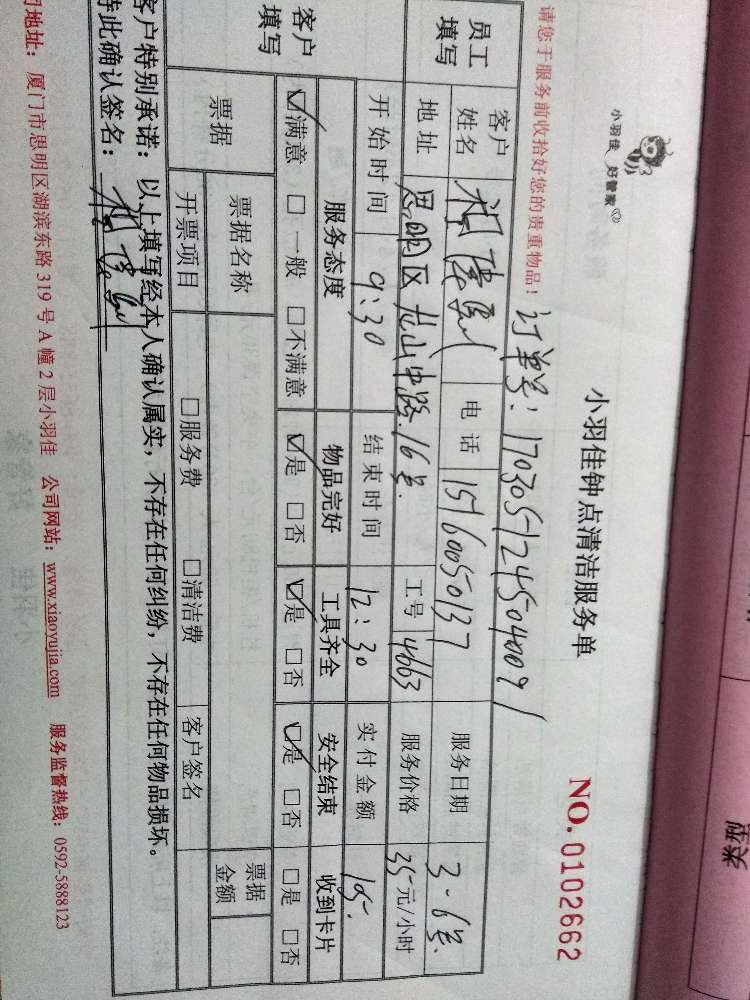 小羽佳 好管家
小羽佳钟点清洁服务单
NO.0102662
请您于服务前收拾好您的贵重物品！
订单号：1703051245040091
员工填写 客户姓名 电话 15160050137 服务日期 3-6号.
地址 思明区龙山中路16号. 工号 4663 服务价格 35元/小时
开始时间 9:30 结束时间 12:30 实付金额 105.
客户填写 服务态度 物品完好 工具齐全 安全结束 收到卡片
☑满意 □一般 □不满意 ☑是 □否 ☑是 □否 ☑是 □否 □是 □否
票据 票据名称 票据金额
开票项目 □服务费 □清洁费 客户签名
客户特别承诺：以上填写经本人确认属实，不存在任何纠纷，不存在任何物品损坏。
特此确认签名：
司地址：厦门市思明区湖滨东路319号A幢2层小羽佳 公司网站：www.xiaoyujia.com 服务监督热线：0592-5888123